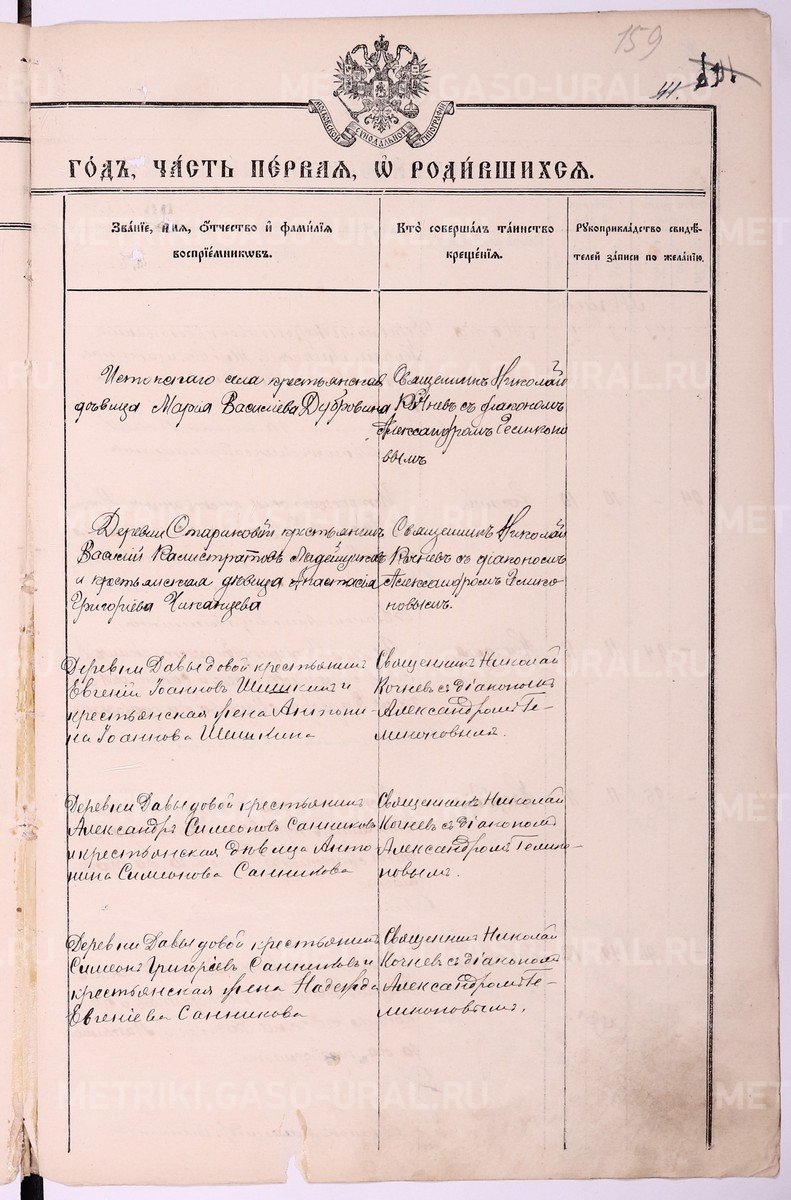 159
41.
МОСКОВСКОЙ СУНОДАЛЬНОЙ ТИПОГРАФІИ
ГО́ДЪ, ЧА́СТЬ ПЕ́РВАЯ, Ѡ РОДИ́ВШИХСЯ.
Зва́нїе, и́мя, о́тчество и҆ фами́лїя
воспрїе́мникωвъ.
Кто̀ соверша́лъ та́инство
креще́нїя.
Рꙋкоприкла́дство свидѣ́-
телей за́писи по жела́нїю.
Истокскаго села крестьянская
дѣвица Марія Васильева Дубровина
Священникъ Николай
Кочневъ съ діакономъ
Александромъ Гелико
вымъ
Деревни Стариковой крестьянинъ
Василій Калистратовъ
и крестьянская дѣвица Анастасія
Григорьева
Священникъ Николай
Кочневъ съ діакономъ
Александромъ
новымъ.
Деревни Давыдовой крестьянинъ
Евгеній Іоанновъ Шишкинъ и
крестьянская жена Антони-
на Іоаннова Шишкина
Священникъ Николай
Кочневъ съ діакономъ
Александромъ Ге-
ликоновымъ.
Деревни Давыдовой крестьянинъ
Александръ Симеоновъ Санниковъ
и крестьянская дѣвица Анто
нина Симеонова Санникова
Священникъ Николай
Кочневъ съ діакономъ
Александромъ Гелико-
новымъ.
Деревни Давыдовой крестьянинъ
Симеонъ Григоріевъ Санниковъ и
крестьянская жена Надежда
Евгеніева Санникова
Священникъ Николай
Кочневъ съ діакономъ
Александромъ Ге-
ликоновымъ.
METRIKI.GASO-URAL.RU